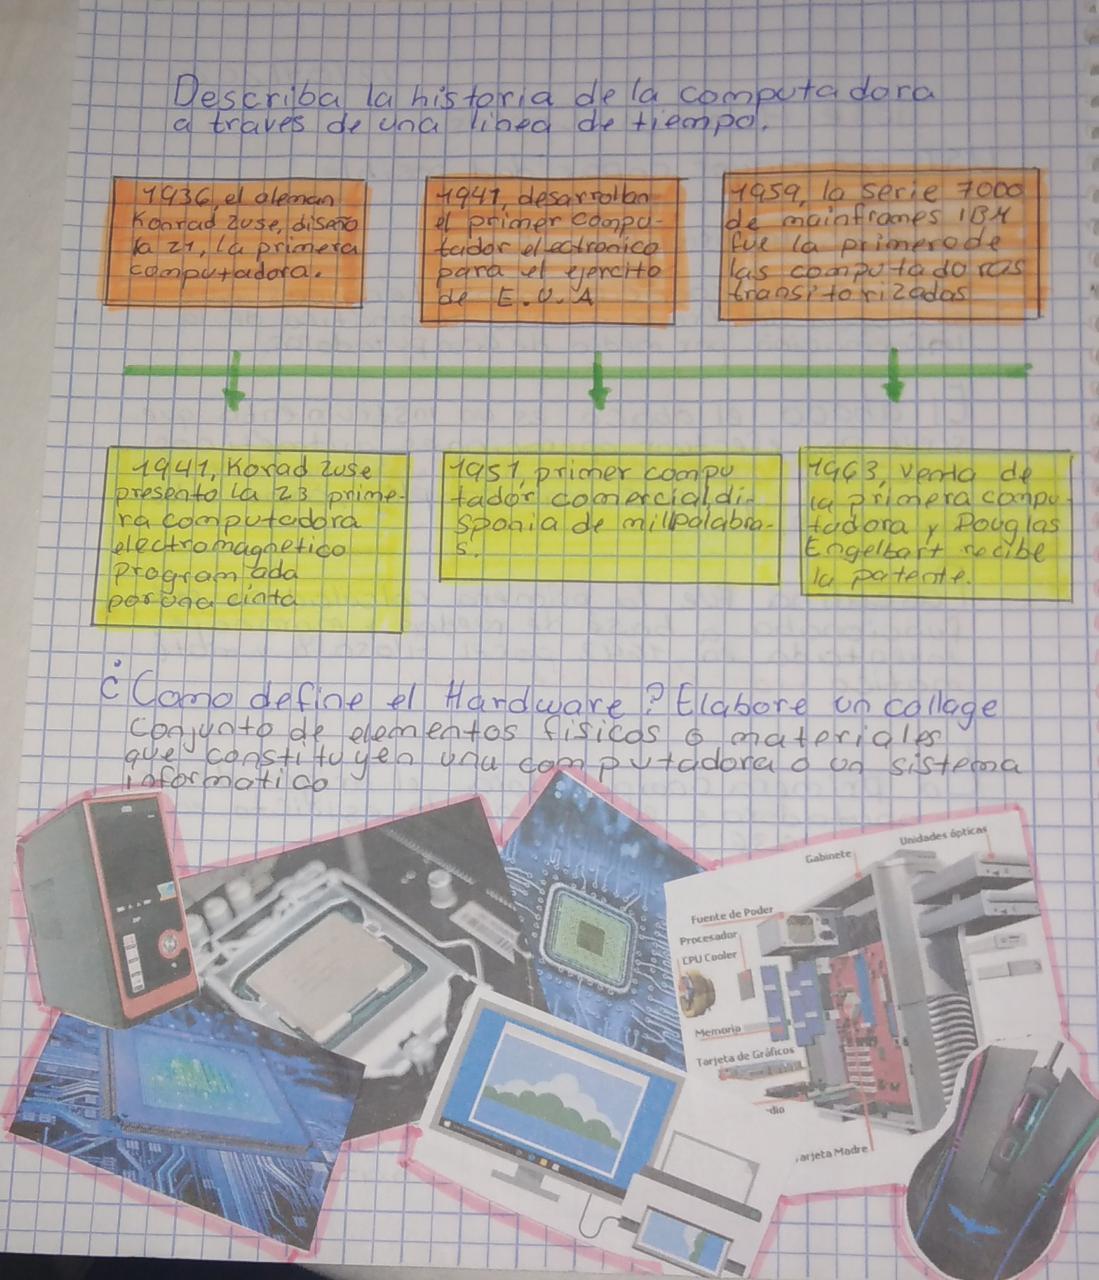 Describa la historia de la computadora
a traves de una linea de tiempo.
1936, el aleman
Konrad zuse, diseño
la z1, la primera
computadora.
1941, desarrollan
el primer compu-
tador electronico
para el ejercito
de E.U.A
1959, la serie 7000
de mainframes IBM
fue la primero de
las computadoras
transitorizadas
1941, Korad zuse
presento la z3 prime-
ra computadora
electromagnetico
program ada
por una cinta
1951, primer compu
tador comercial di-
sponia de mil palabra-
s.
1963, venta de
la primera compu-
tadora y Douglas
Engelbart recibe
la patente.
¿Como define el Hardware? Elabore un collage
Conjunto de elementos fisicos o materiales
que constituyen una computadora o un sistema
informatico
Unidades ópticas
Gabinete
Fuente de Poder
Procesador
CPU Cooler
Memoria
Tarjeta de Gráficos
dio
arjeta Madre